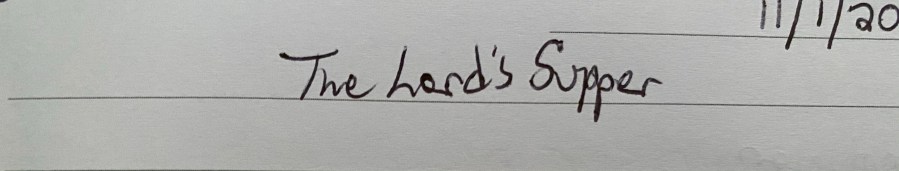 11/1/20
The Lord's Supper